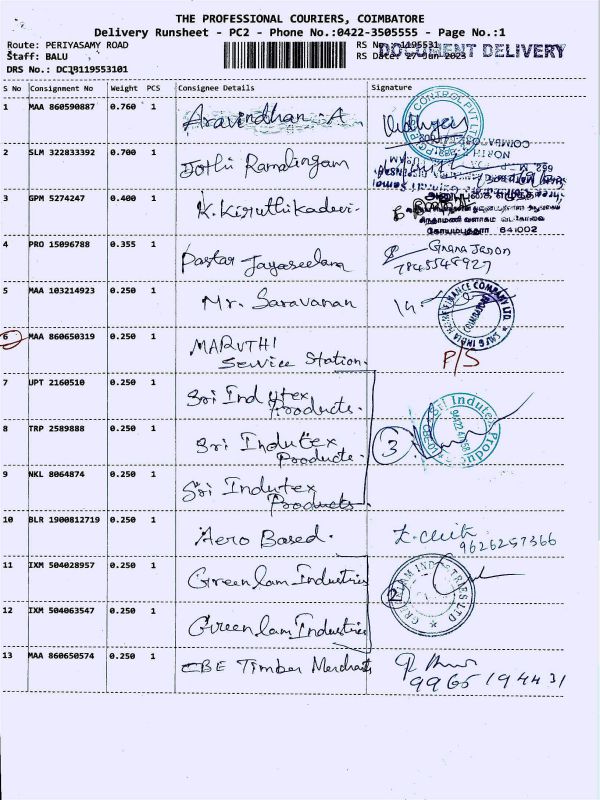 THE PROFESSIONAL COURIERS, COIMBATORE
Delivery Runsheet - PC2 - Phone No.:0422-3505555 - Page No.:1
Route: PERIYASAMY ROAD
Staff: BALU
DRS No.: DC18119553101
RS No.: 1195531
RS Date: 27-Jun-2023
DOCUMENT DELIVERY
S No Consignment No Weight PCS Consignee Details Signature
1 MAA 860590887 0.760 1 Aravindhan.A
2 SLM 322833392 0.700 1 Jothi Ramalingam
3 GPM 5274247 0.400 1 K.Kiruthikadevi.
சிந்தாமணி வளாகம் வடகோவை
கோயமுத்தூர் 641002
4 PRO 15096788 0.355 1 Pastar Jayaseelan Gnana Jason
7845548927
5 MAA 103214923 0.250 1 Mr. Saravanan
6 MAA 860650319 0.250 1 MARUTHI
Service Station. P/S
7 UPT 2160510 0.250 1 Sri Indutex
Products.
8 TRP 2589888 0.250 1 Sri Indutex
Products. 3
Sri Indutex Produ
9 NKL 8064874 0.250 1 Sri Indutex
Products.
10 BLR 1900812719 0.250 1 Aero Based.
9626257366
11 IXM 504028957 0.250 1 Greenlam Industries
2
12 IXM 504063547 0.250 1 Greenlam Industries
13 MAA 860650574 0.250 1 CBE Timber Merchants
9965194431